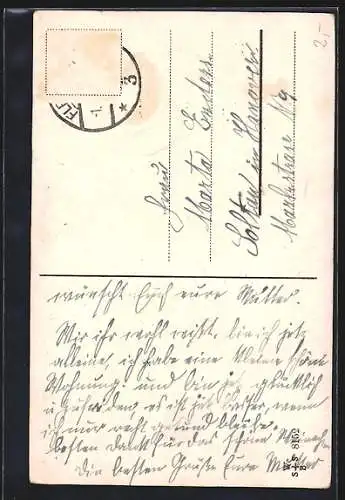 2,-
3
Frau
Marta
Soltau in Hannover
Marktstrasse No 9
wünscht Euch eure Mutter.
Wir ihr wohl wißt, bin ich jetzt
alleine, ich habe eine kleine schöne
Wohnung und bin jetzt glücklich
u. zufrieden, es ist jetzt besser, wenn
ich nur recht gesund bleibe.
besten Dank für das schöne
Die besten Grüße Eure Mutter
S+S 8152